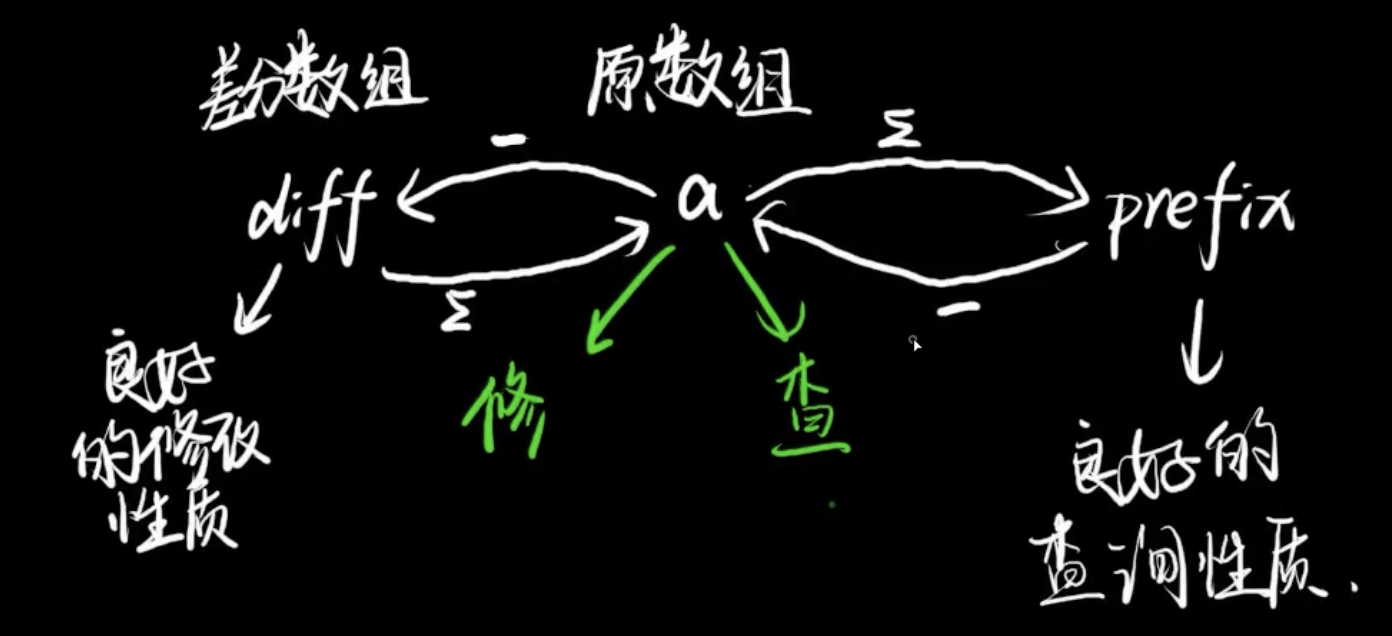 差分数组 原数组
− Σ
diff a prefix
Σ −
良好
的修改
性质
修 查
良好的
查询性质.